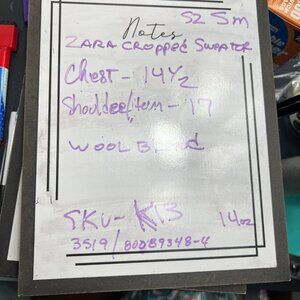 SZ Sm
Notes
ZARA CROPPED SWEATER
Chest - 14 1/2
Shoulder/Hem - 17
WOOL Blend
SKU - K13
14oz
3519/80289348-4